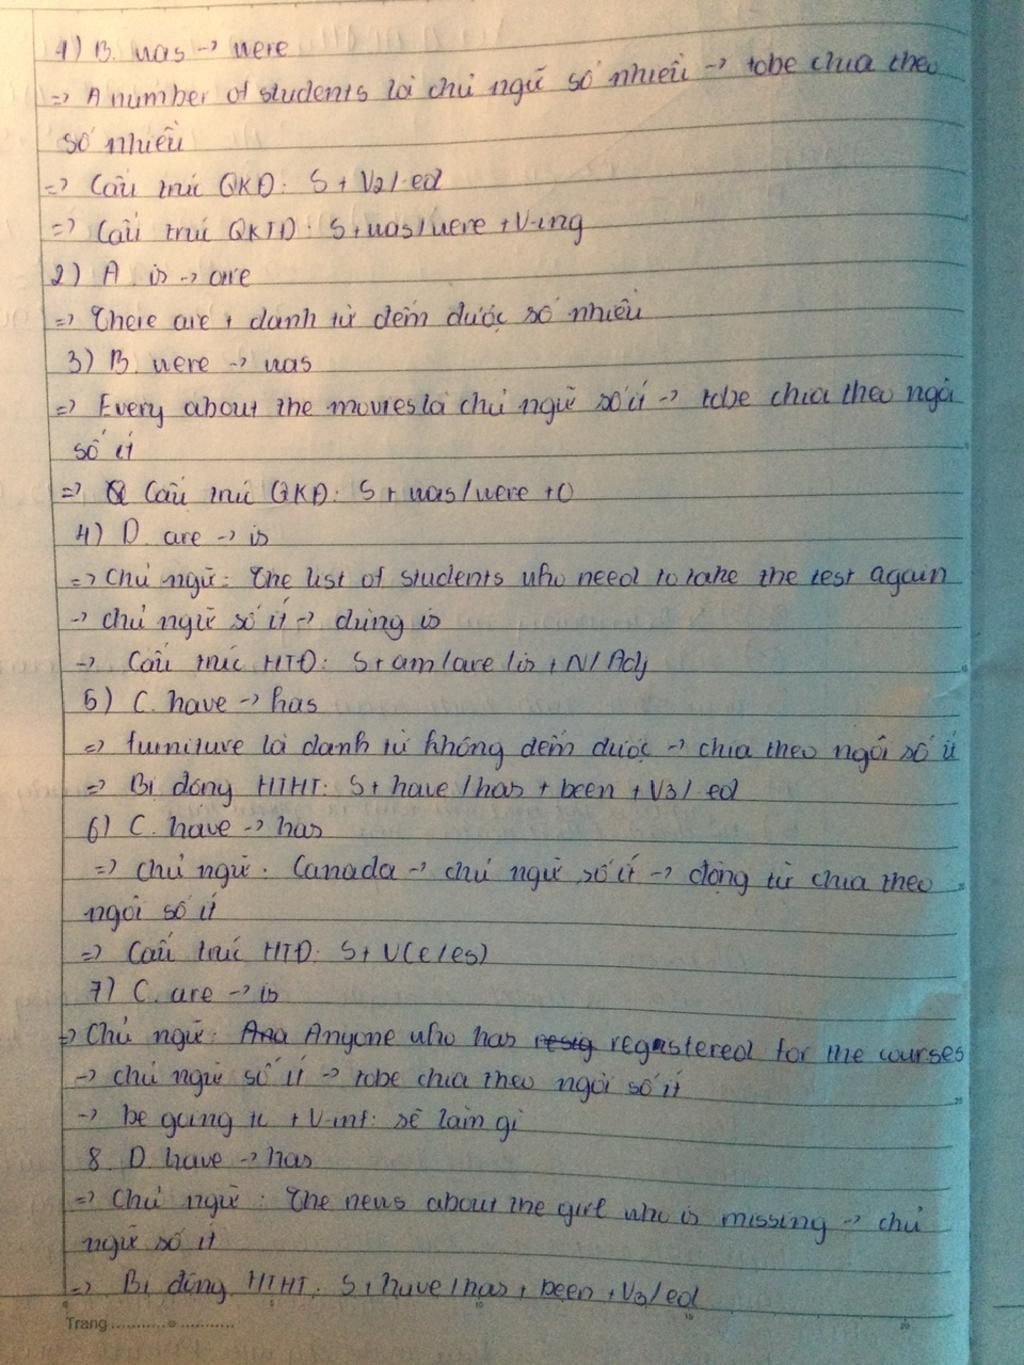 1) B. was -> were
=> A number of students là chủ ngữ số nhiều -> tobe chia theo
số nhiều
=> Cấu trúc QKĐ: S + V2/-ed
=> Cấu trúc QKTD: S+was/were +V-ing
2) A is -> are
=> There are + danh từ đếm được số nhiều
3) B. were -> was
=> Every about the movies là chủ ngữ số ít -> tobe chia theo ngôi
số ít
=> Cấu trúc QKĐ: S + was/were +O
4) D. are -> is
=> Chủ ngữ: The list of students who need to take the test again
-> chủ ngữ số ít -> dùng is
-> Cấu trúc HTĐ: S+am/are/is + N/Adj
5) C. have -> has
=> furniture là danh từ không đếm được -> chia theo ngôi số ít
=> Bị động HTHT: S+ have/has + been + V3/-ed
6) C. have -> has
=> Chủ ngữ: Canada -> chủ ngữ số ít -> động từ chia theo
ngôi số ít
=> Cấu trúc HTĐ: S+ V(e/es)
7) C. are -> is
=> Chủ ngữ: Ana Anyone who has resig registered for the courses
-> chủ ngữ số ít -> tobe chia theo ngôi số ít
-> be going to + V-inf: sẽ làm gì
8. D. have -> has
=> Chủ ngữ: The news about the girl who is missing -> chủ
ngữ số ít
=> Bị động HTHT: S+have/has + been +V3/ed
Trang